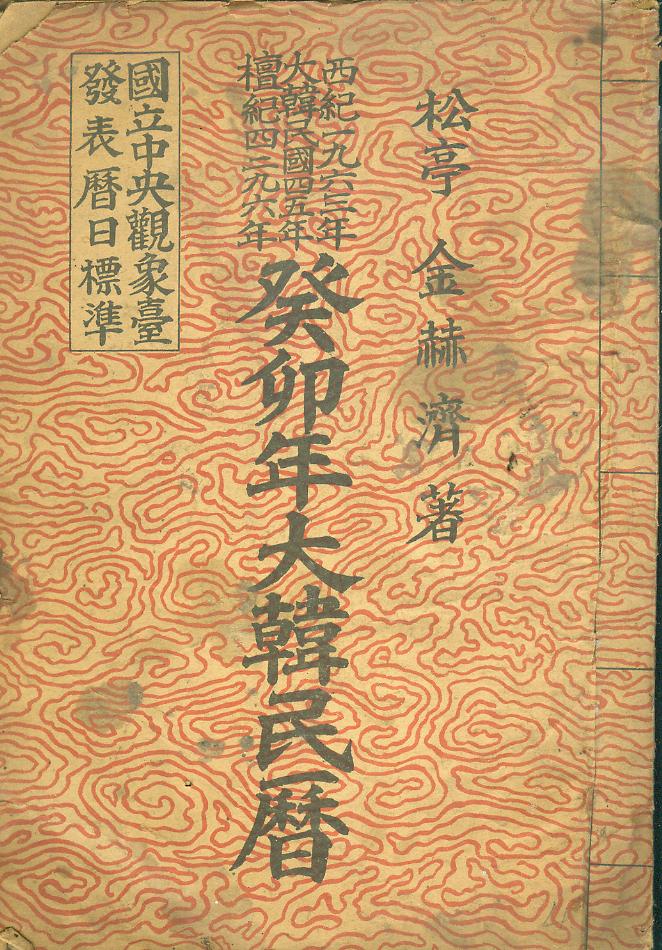 松亭 金赫濟 著
西紀一九六三年
大韓民國四五年
檀紀四二九六年
癸卯年大韓民曆
國立中央觀象臺
發表曆日標準